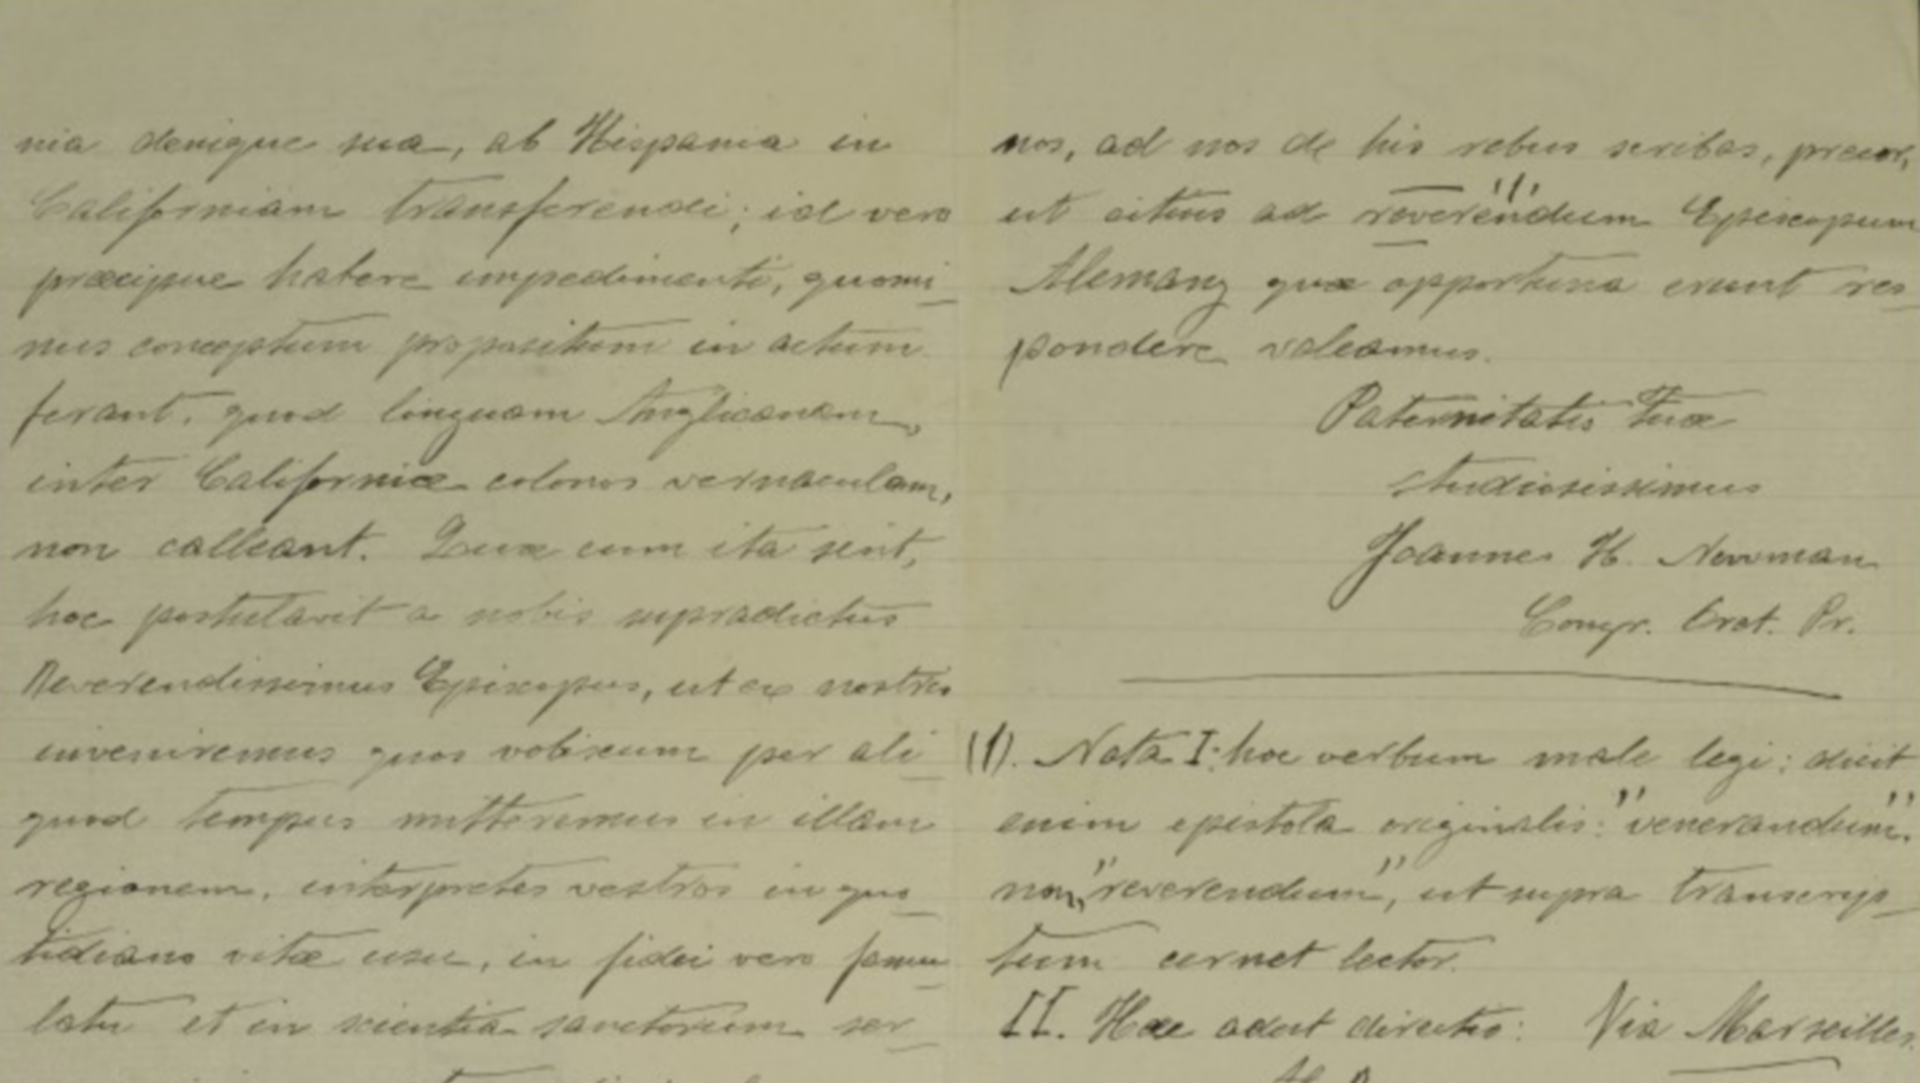 nia denique sua, ab Hispania in
Californiam transferendi; id vero
præcipue habere impedimenti, quomi_
nus conceptum propositum in actum
ferant, quod linguam Anglicanam,
inter Californiæ colonos vernaculam,
non calleant. Quæ cum ita sint,
hoc postulavit a nobis supradictus
Reverendissimus Episcopus, ut ex nostris
inveniremus quos vobiscum per ali_
quod tempus mitteremus in illam
regionem, interpretes vestros in quo_
tidiano vitæ usu, in fidei vero famu_
latu et in scientia sanctorum ser_
nos, ad nos de his rebus scribas, precor,
ut citius ad reverendum (1) Episcopum
Alemany quæ opportuna erunt res_
pondere valeamus.
Paternitatis Tuæ
studiosissimus
Joannes H. Newman
Congr. Orat. Pr.
(1). Nota I: hoc verbum male legi: dicit
enim epistola originalis: "venerandum",
non, "reverendum", ut supra transcrip_
tum cernet lector.
II. Hæc adest directio: Via Marseilles.